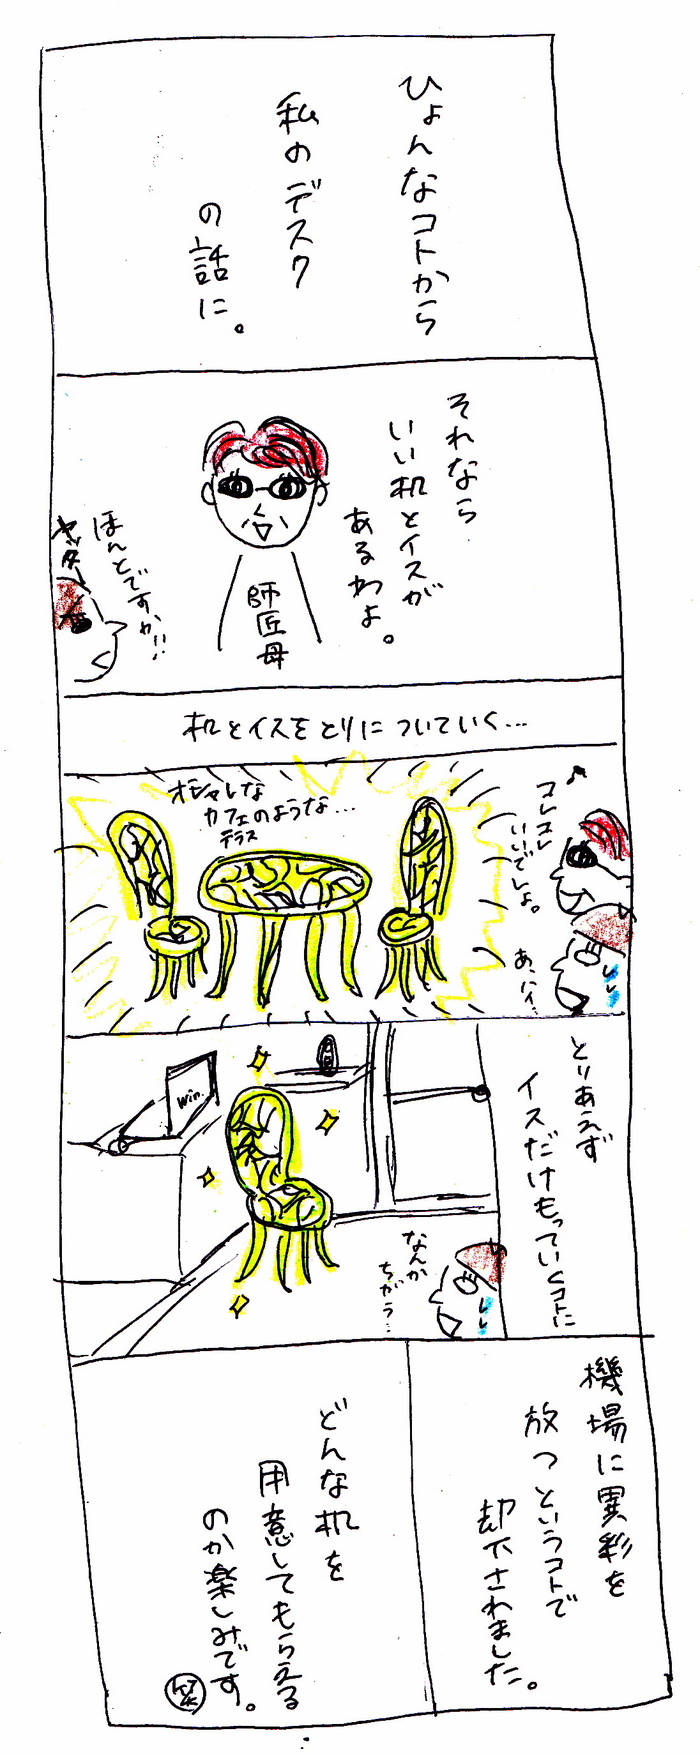 ひょんなコトから
私のデスク
の話に。
それなら
いい机とイスが
あるわよ。
師匠母
ほんとですか!!
ヤッター
机とイスをとりについていく…
♪
コレコレ
いいでしょ。
オシャレな
カフェのような…
テラス
あ、ハイ…
とりあえず
イスだけもっていくコトに
win.
なんか
ちがう…
機場に異彩を
放つというコトで
却下されました。
どんな机を
用意してもらえる
のか楽しみです。
笑